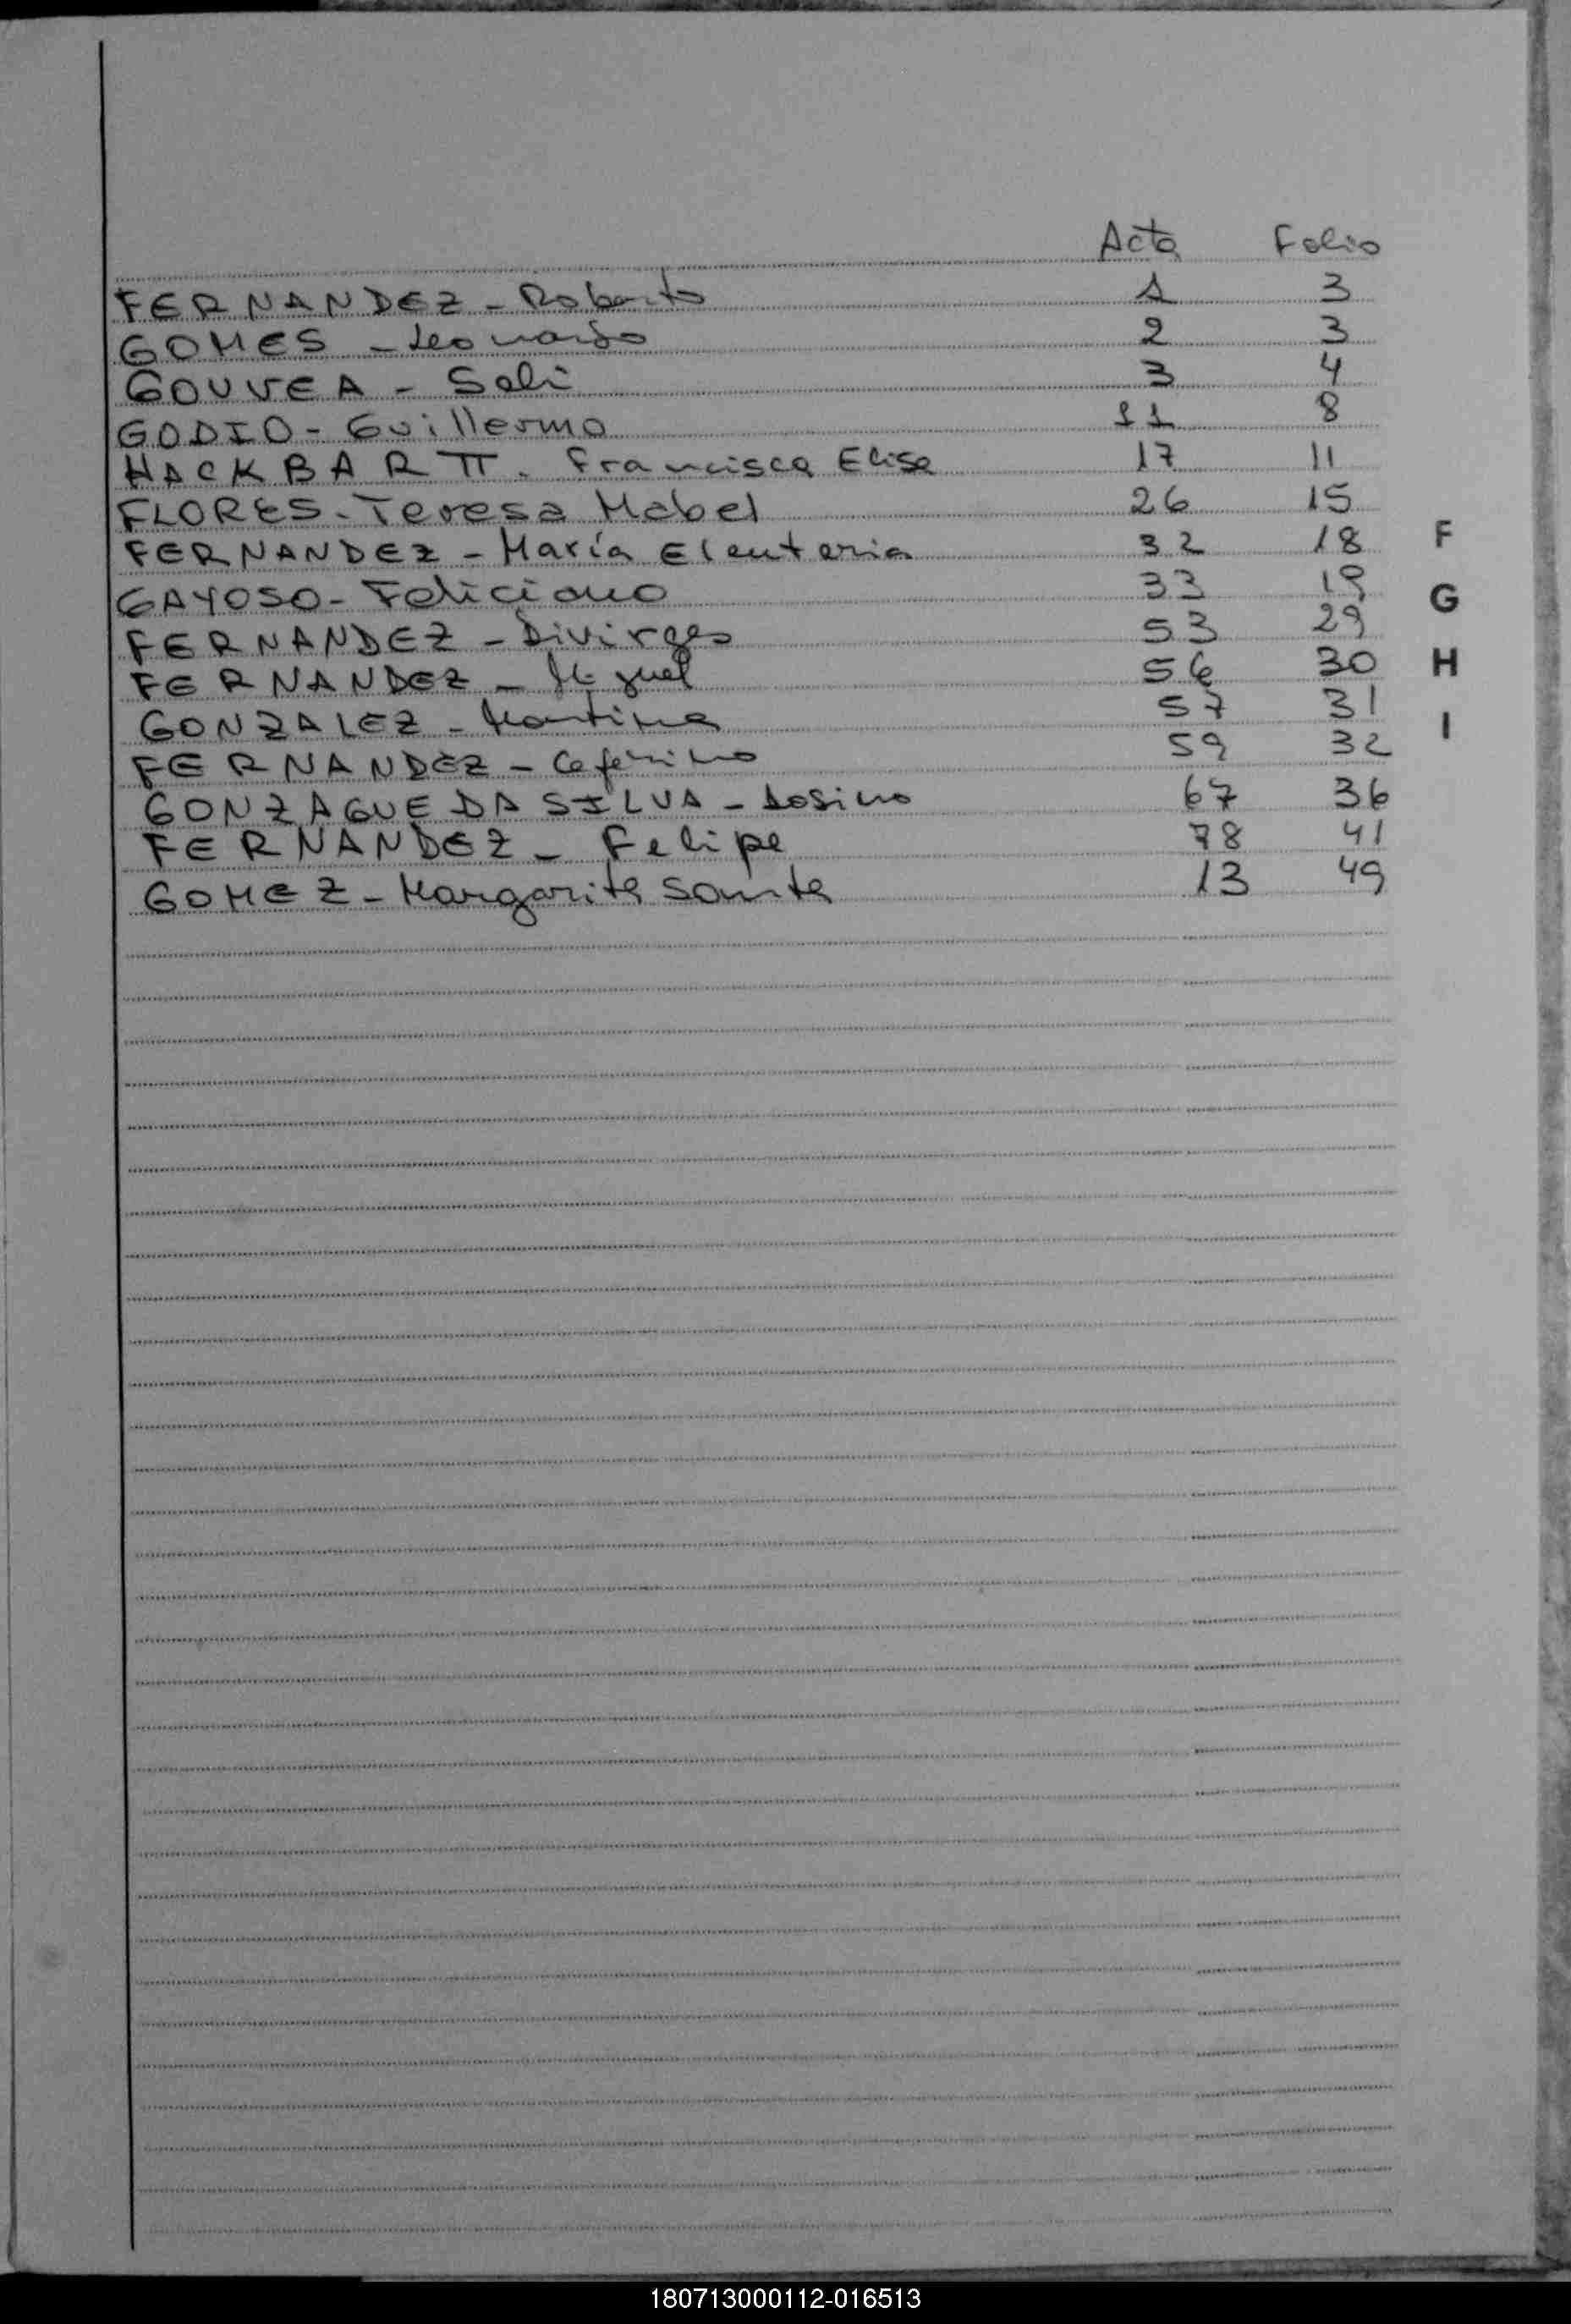 Acta Folio
FERNANDEZ - Roberto 1 3
GOMES - Leonardo 2 3
GOUVEA - Seli 3 4
GODIO - Guillermo 11 8
HACKBARTT. Francisca Elisa 17 11
FLORES - Teresa Mabel 26 15
FERNANDEZ - María Eleuteria 32 18
F
GAYOSO - Feliciano 33 19
G
FERNANDEZ - 53 29
FERNANDEZ - Miguel 56 30
H
GONZALEZ - Martina 57 31
I
FERNANDEZ - Ceferino 59 32
GONZAGUE DA SILVA - 67 36
FERNANDEZ - Felipe 78 41
GOMEZ - Margarita 13 49
180713000112-016513